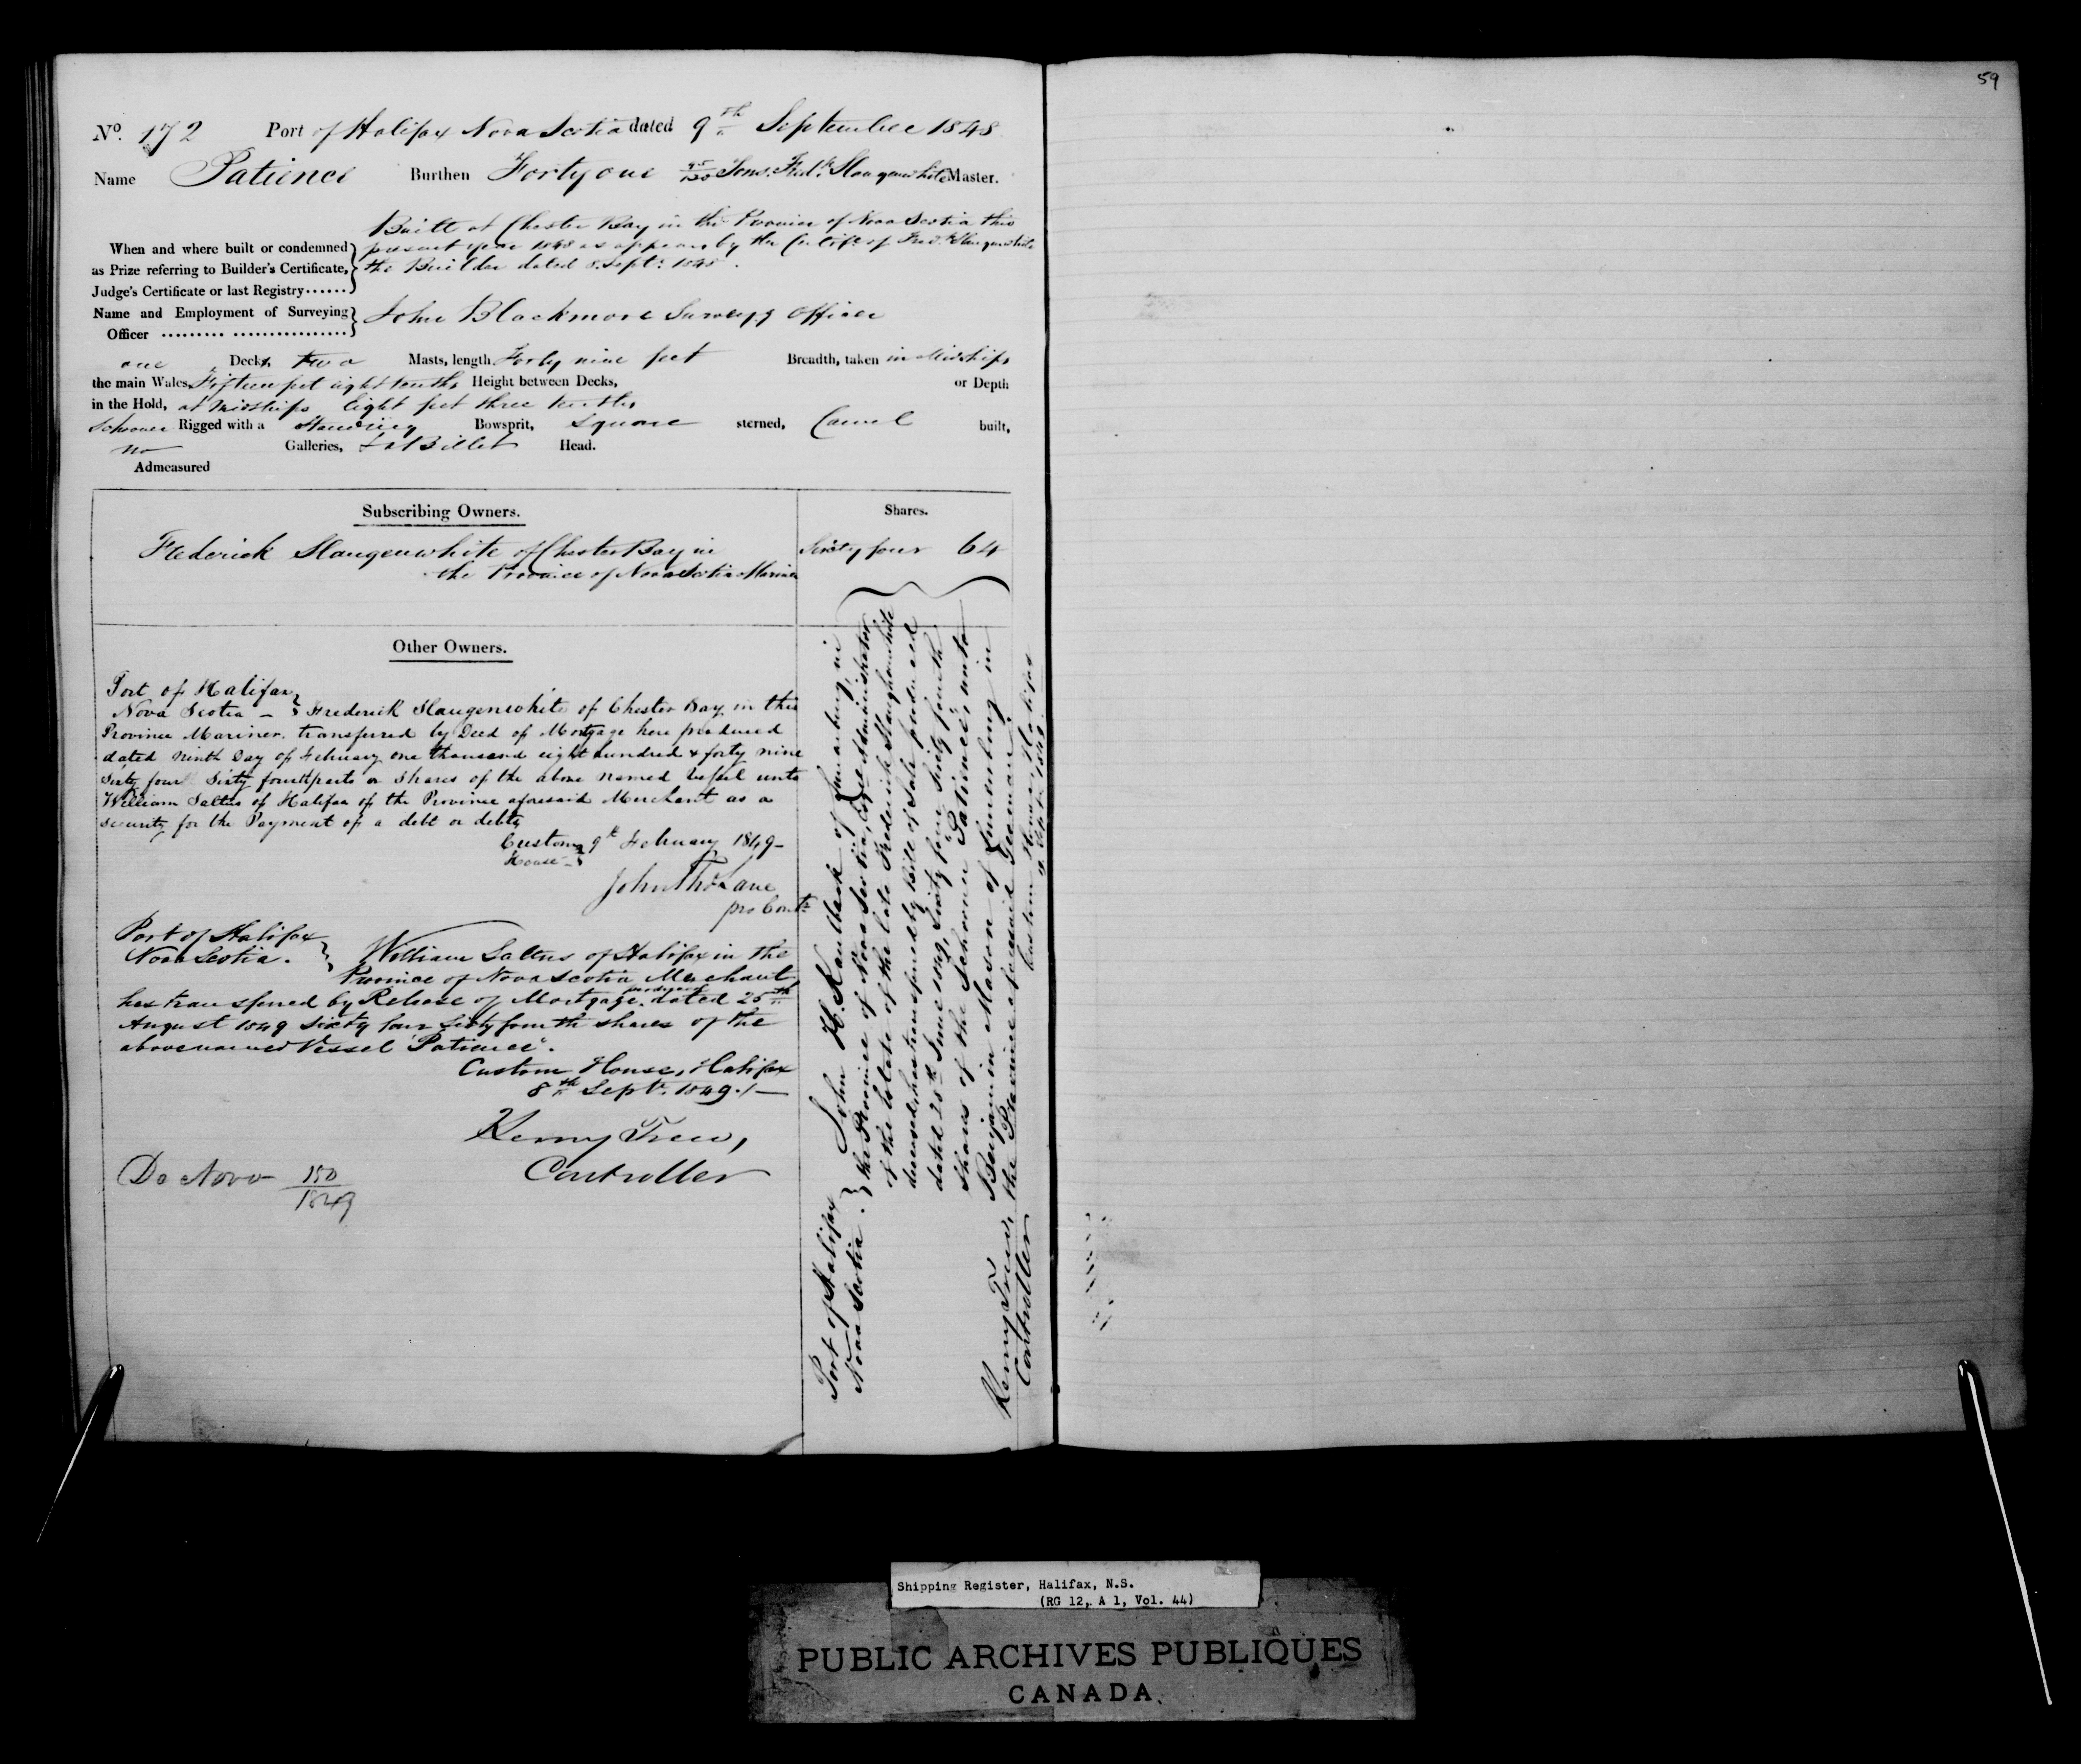 59
No. 172 Port of Halifax Nova Scotia dated 9th September 1848
Name Patience Burthen Forty one Tons. Fredk Slaugenwhite Master.
Built at Chester Bay in the Province of Nova Scotia this
When and where built or condemned present year 1848 as appears by the Certift. of Fredk Slaugenwhite
as Prize referring to Builder's Certificate, the Builder dated 8 Septr. 1848.
Judge's Certificate or last Registry......
Name and Employment of Surveying John Blackmore Surveyg Officer
Officer ......... ................
one Deck, two Masts, length Forty nine feet Breadth, taken in Midships
the main Wales, Fifteen feet eight tenths Height between Decks, or Depth
in the Hold, at Midships Eight feet three tenths
Schooner Rigged with a Standing Bowsprit, Square sterned, Carvel built,
no Galleries, & a Billet Head.
Admeasured
Subscribing Owners. Shares.
Frederick Slaugenwhite of Chester Bay in Sixty four 64
the Province of Nova Scotia Mariner
Other Owners.
Port of Halifax
Nova Scotia - Frederick Slaugenwhite of Chester Bay in this
Province Mariner. transferred by Deed of Mortgage here produced
dated Ninth Day of February one thousand eight hundred & forty nine
Sixty four Sixty fourthparts or shares of the above named Vessel unto
William Saltus of Halifax of the Province aforesaid Merchant as a
security for the Payment of a debt or debts
Custom 9th February 1849-
House -
John Thos Lane
pro Contr
Port of Halifax
Nova Scotia. William Saltus of Halifax in the
Province of Nova Scotia Merchant
has transferred by Release of Mortgage produced dated 25th
August 1849 Sixty four Sixty fourth shares of the
abovenamed Vessel "Patience".
Custom House, Halifax
8th Septr. 1849./-
Henry Trew,
Controller
De Novo 150/1849
Port of Halifax
Nova Scotia. John H. Kaulback of Lunenburg, in
the Province of Nova Scotia, Administrator
of the Estate of the late Frederick Slaughenwhite
deceased, has transferred by Bill of Sale produced
dated 25th June 1849, Sixty four Sixty fourth
shares of the Schooner "Patience," unto
Benjamin Mason of Lunenburg in
the Province aforesaid Yeoman.
Custom House, Halifax
Septr. 1849.
Henry Trew,
Controller
Shipping Register, Halifax, N.S.
(RG 12, A 1, Vol. 44)
PUBLIC ARCHIVES PUBLIQUES
CANADA